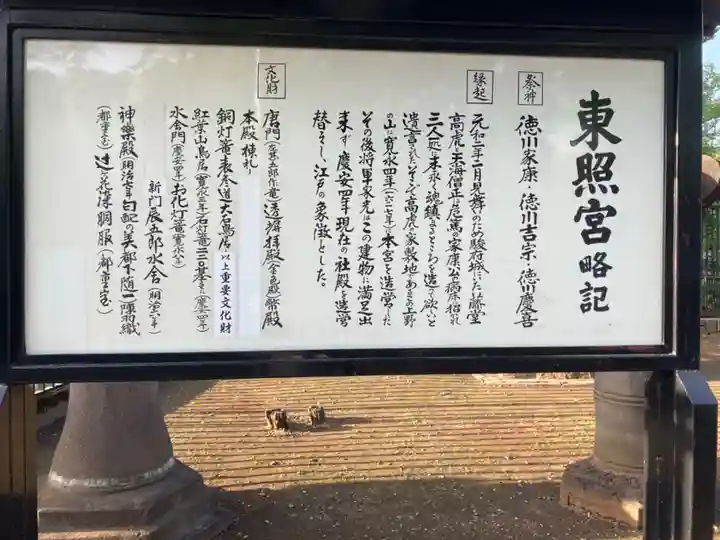 東照宮略記
祭神
徳川家康・徳川吉宗・徳川慶喜
縁起
元和二年二月見舞のため駿府城にいた藤堂
高虎と天海僧正は危篤の家康公の病床に招かれ
三人一処に末永く魂鎮まるところを造って欲しいと
遺言された。そこで高虎の家敷地であったこの上野
の山に寛永四年(一六二七年)本宮を造営した
その後将軍家光はこの建物に満足出
来ず慶安四年現在の社殿を造営
替えし、江戸の象徴とした。
文化財
唐門(左甚五郎作竜)透塀拝殿(金色殿)幣殿
本殿
銅灯篭表参道大石鳥居・以上重要文化財
紅葉山鳥居(寛永三年)石灯篭二三〇基(慶安四年)
水舎門(慶安四年)お化灯篭(寛永八年)
新門辰五郎水舎(明治六年)
神樂殿(明治七年)
(都重宝)辻が花染胴服(都重宝)